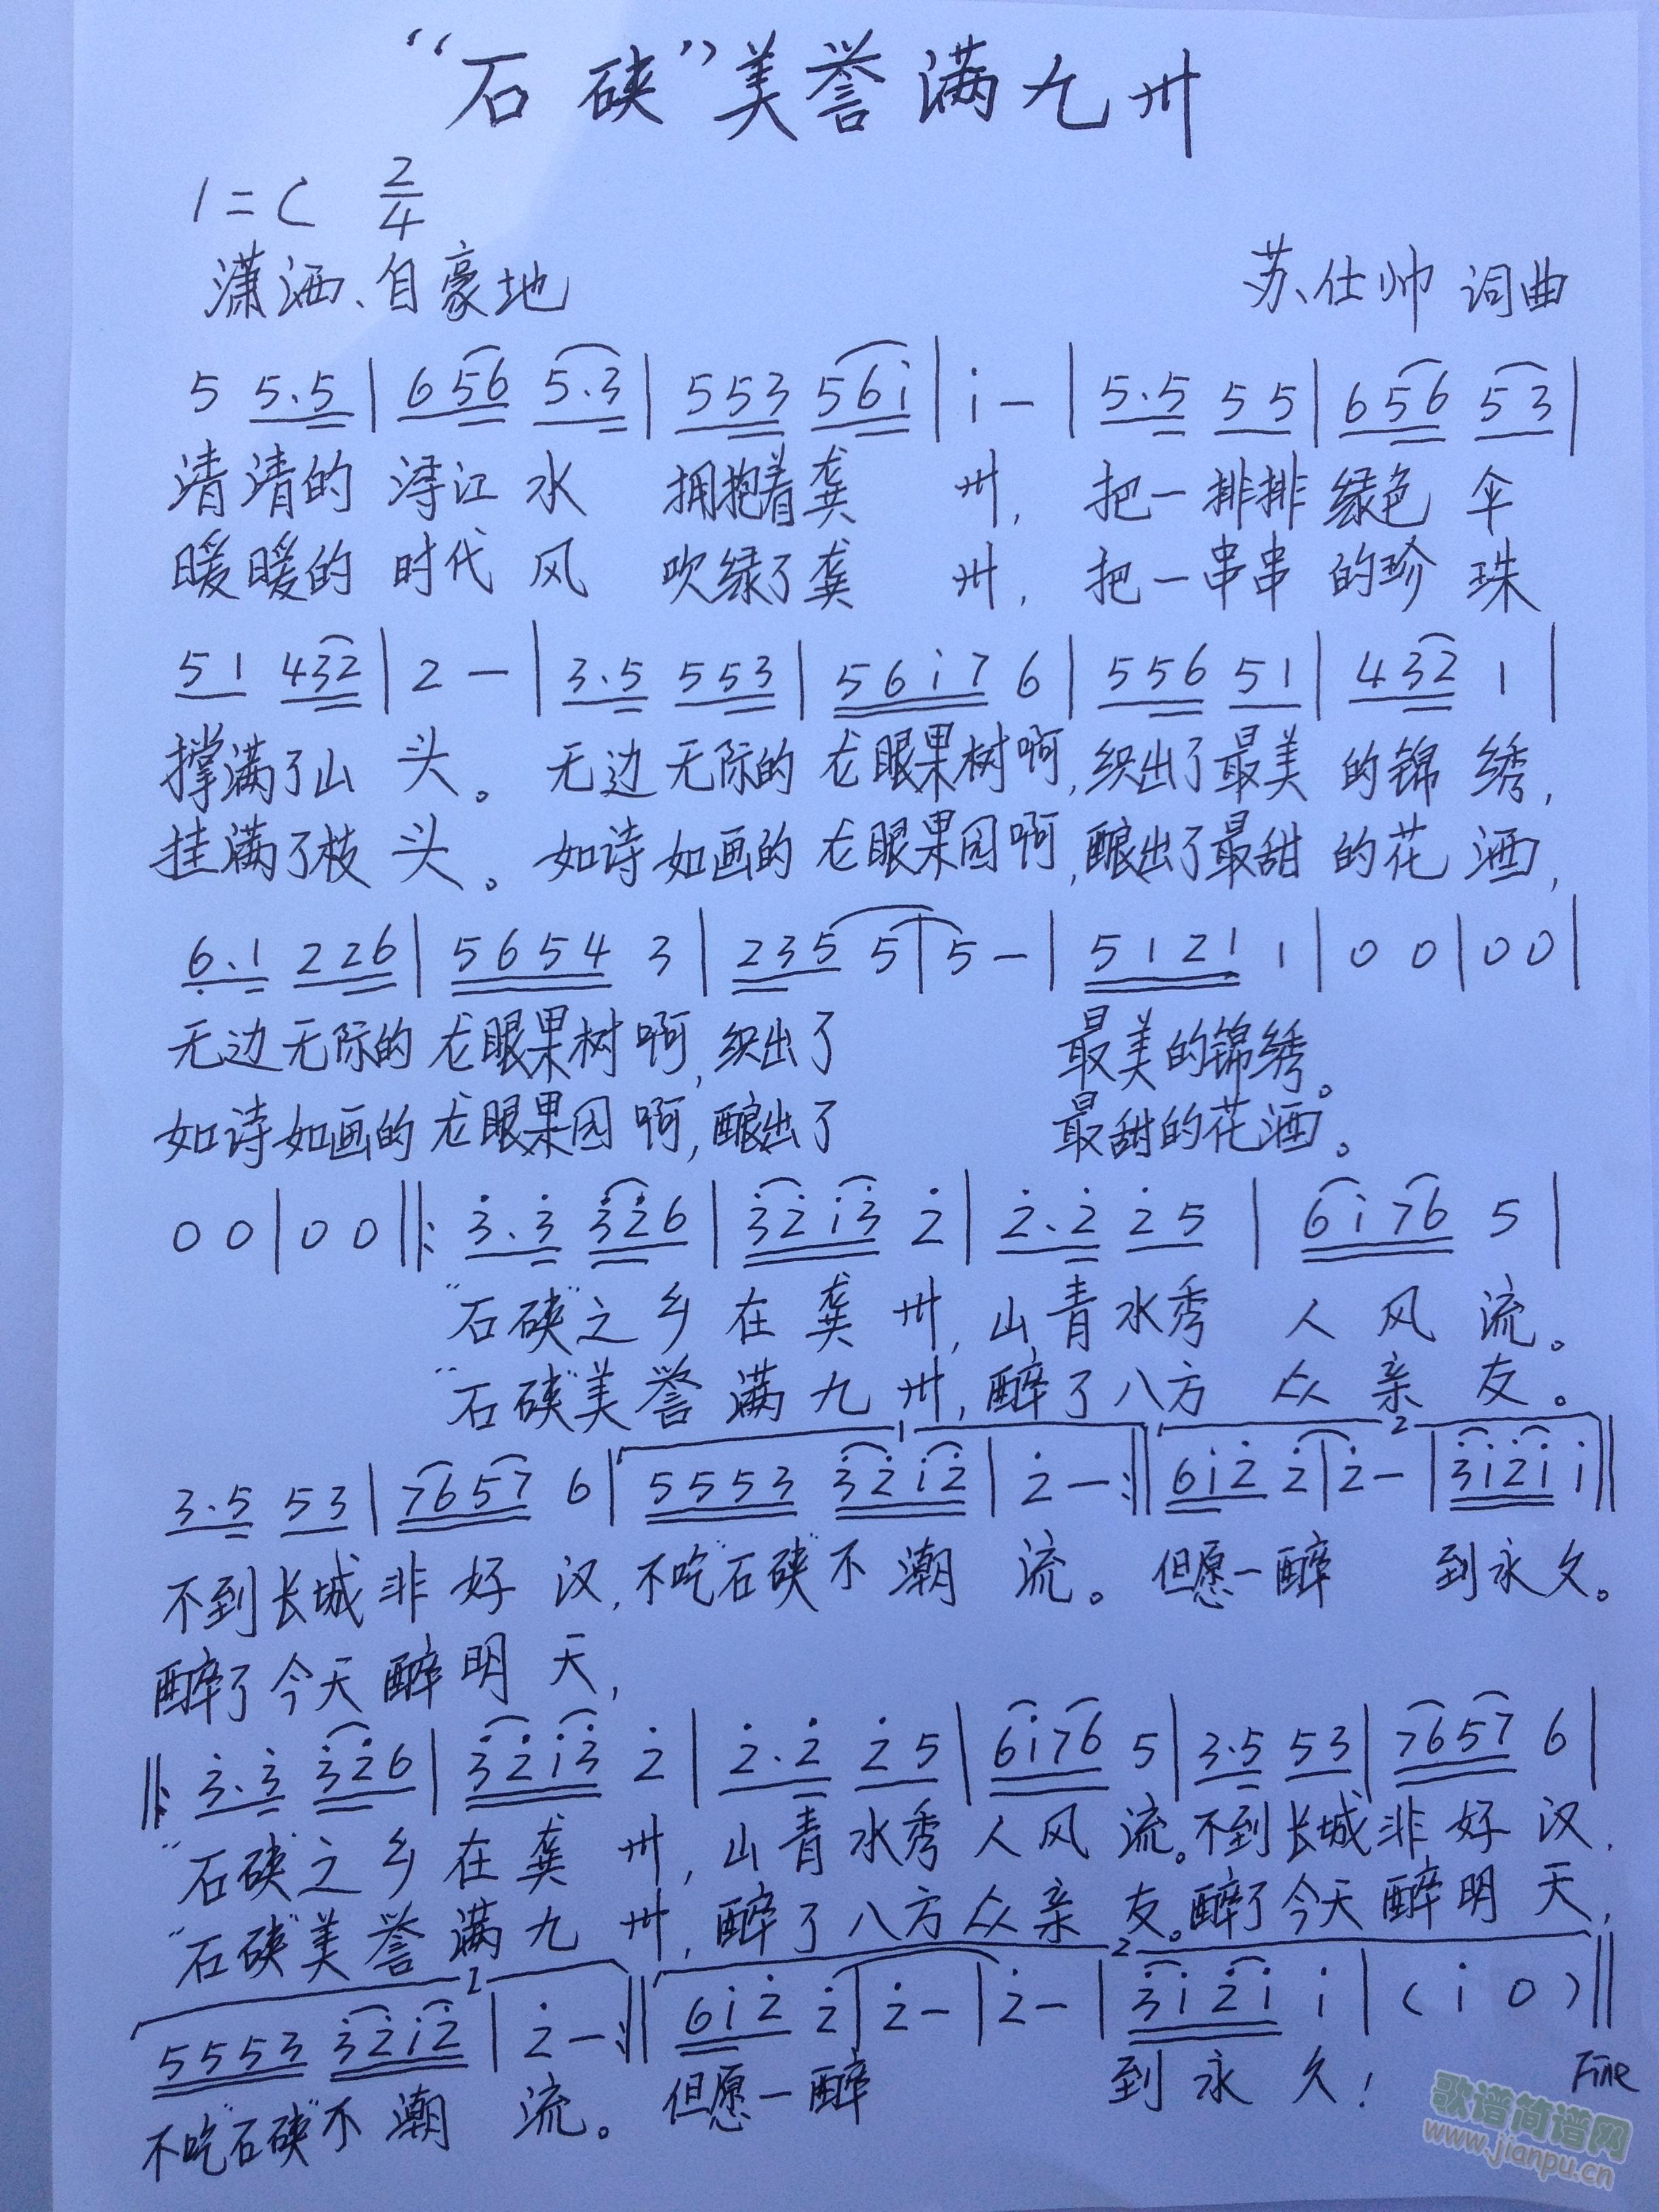 “石硖”美誉满九州
1=C 2/4
潇洒、自豪地 苏仕帅 词曲
5 5.5 | 6 5 6 5.3 | 5 5 3 5 6 i | i - | 5.5 5 5 | 6 5 6 5 3 |
清清的浔江水 拥抱着龚 州, 把一排排绿色伞
暖暖的时代风 吹绿了龚 州, 把一串串的珍珠
5 1 4 3 2 | 2 - | 3.5 5 5 3 | 5 6 i 7 6 | 5 5 6 5 1 | 4 3 2 1 |
撑满了山头。无边无际的龙眼果树啊,织出了最美的锦绣,
挂满了枝头。如诗如画的龙眼果园啊,酿出了最甜的花酒,
6.1 2 2 6 | 5 6 5 4 3 | 2 3 5 5 | 5 - | 5 1 2 1 1 | 0 0 | 0 0 |
无边无际的龙眼果树啊,织出了 最美的锦绣。
如诗如画的龙眼果园啊,酿出了 最甜的花酒。
0 0 | 0 0 ‖: 3.3 3 2 6 | 3 2 i 3 2 | 2.2 2 5 | 6 i 7 6 5 |
“石硖”之乡在龚州,山青水秀人风流。
“石硖”美誉满九州,醉了八方众亲友。
1 2
3.5 5 3 | 7 6 5 7 6 | 5 5 5 3 3 2 i 2 | 2 - :‖ 6 i 2 2 | 2 - | 3 i 2 i i ‖
不到长城非好汉,不吃“石硖”不潮流。但愿一醉 到永久。
醉了今天醉明天,
‖: 3.3 3 2 6 | 3 2 i 3 2 | 2.2 2 5 | 6 i 7 6 5 | 3.5 5 3 | 7 6 5 7 6 |
“石硖”之乡在龚州,山青水秀人风流。不到长城非好汉,
“石硖”美誉满九州,醉了八方众亲友。醉了今天醉明天,
1 2
5 5 5 3 3 2 i 2 | 2 - :‖ 6 i 2 2 | 2 - | 2 - | 3 i 2 i i | ( i 0 ) ‖
不吃“石硖”不潮流。但愿一醉 到永久! Fine
歌谱简谱网
www.jianpu.cn